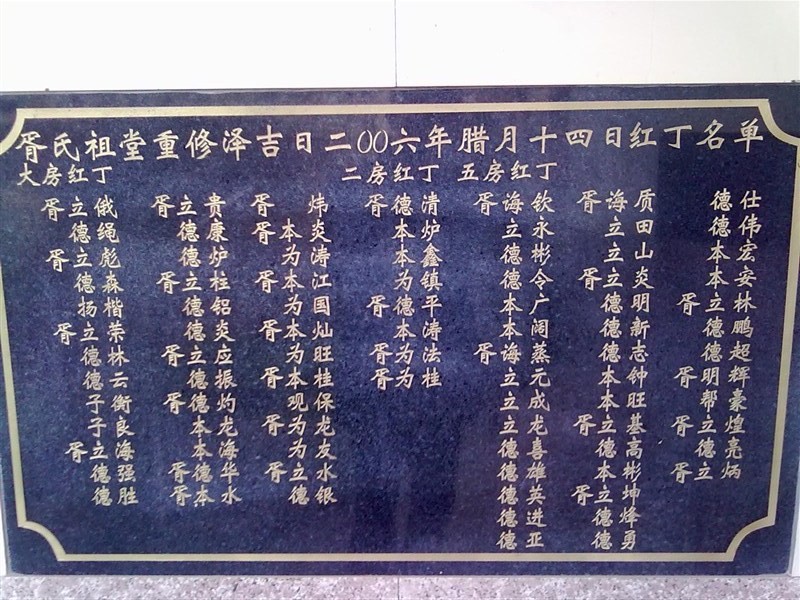 胥氏祖堂重修泽吉日二〇〇六年腊月十四日红丁名单
大房红丁
胥立俄
德绳
胥立彪
德森
扬楷
胥立荣
德林
德云
子衡
子良
胥立海
德强
德胜
胥立贵
德康
德炉
胥立柱
德铝
德炎
胥立应
德振
胥德灼
本龙
本海
胥德华
胥本水
胥炜
胥本炎
为涛
胥本江
为国
胥本灿
为旺
胥本桂
观保
胥为龙
为友
胥立水
德银
二房红丁
胥德清
本炉
本鑫
为镇
胥德平
本涛
胥为法
胥为桂
五房红丁
胥海钦
立永
德彬
德令
本广
本阔
胥海蒸
立元
立成
立龙
德喜
德雄
德英
德进
德亚
胥海质
立田
立山
胥立炎
德明
德新
德志
本钟
本旺
胥立基
德高
本彬
胥立坤
德烽
德勇
德仕
德伟
本宏
本安
胥立林
德鹏
德超
胥明辉
帮豪
胥立煌
德亮
胥立炳